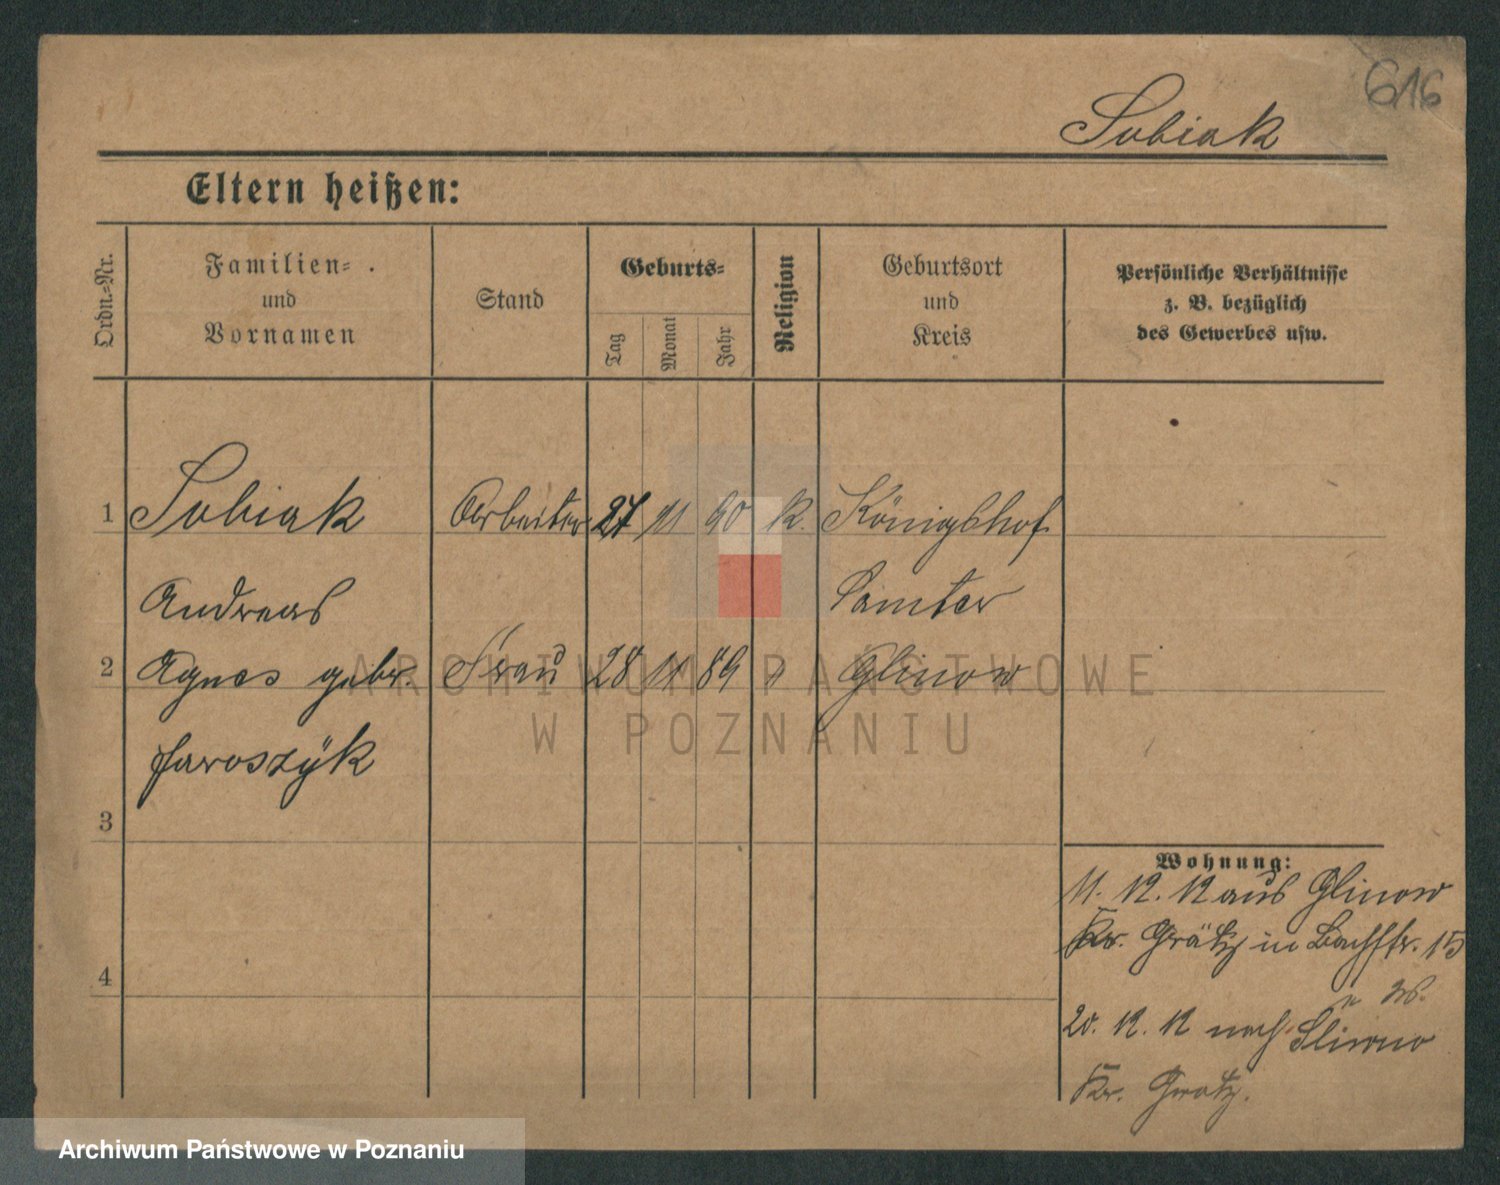 616
Sobiak
Eltern heißen:
Ordn.-Nr.
Familien-
und
Vornamen
Stand
Geburts-
Tag
Monat
Jahr
Religion
Geburtsort
und
Kreis
Persönliche Verhältnisse
z. B. bezüglich
des Gewerbes usw.
1 Sobiak Arbeiter 27 11 90 k. Königshof
Andreas Samter
2 Agnes gebr. Frau 28 11 89 " Glinow
Jaroszÿk
3
4
Wohnung:
11. 12. 12 aus Glinow
Kr. Grätz in Bachstr. 15
20. 12. 12 nach Sliwno
Kr. Grätz.
ARCHIWUM PAŃSTWOWE
W POZNANIU
Archiwum Państwowe w Poznaniu